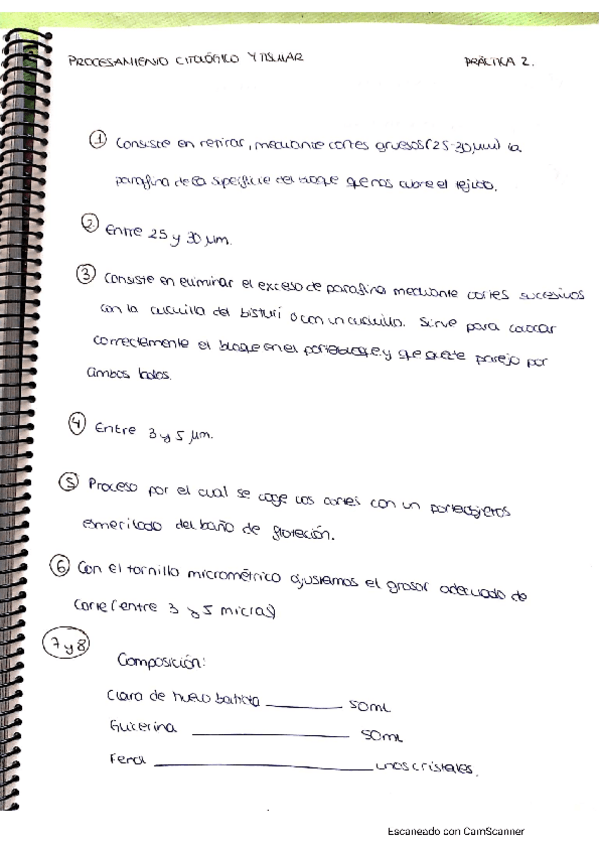 PROCESAMIENTO CITOLÓGICO Y TISULAR PRÁCTICA 2.
① Consiste en retirar, mediante cortes gruesos (25-30 µm) la
parafina de la superficie del bloque que nos cubre el tejido.
② Entre 25 y 30 µm.
③ Consiste en eliminar el exceso de parafina mediante cortes sucesivos
con la cuchilla del bisturí o con un cuchillo. Sirve para colocar
correctamente el bloque en el portabloque y que quede parejo por
ambos lados.
④ Entre 3 y 5 µm.
⑤ Proceso por el cual se coge los cortes con un portaobjetos
esmerilado del baño de flotación.
⑥ Con el tornillo micrométrico ajustamos el grosor adecuado de
corte (entre 3 y 5 micras)
7 y 8
Composición:
Clara de huevo batida ________ 50mL
Glicerina ________________ 50mL
Fenol ______________________ unos cristales.
Escaneado con CamScanner